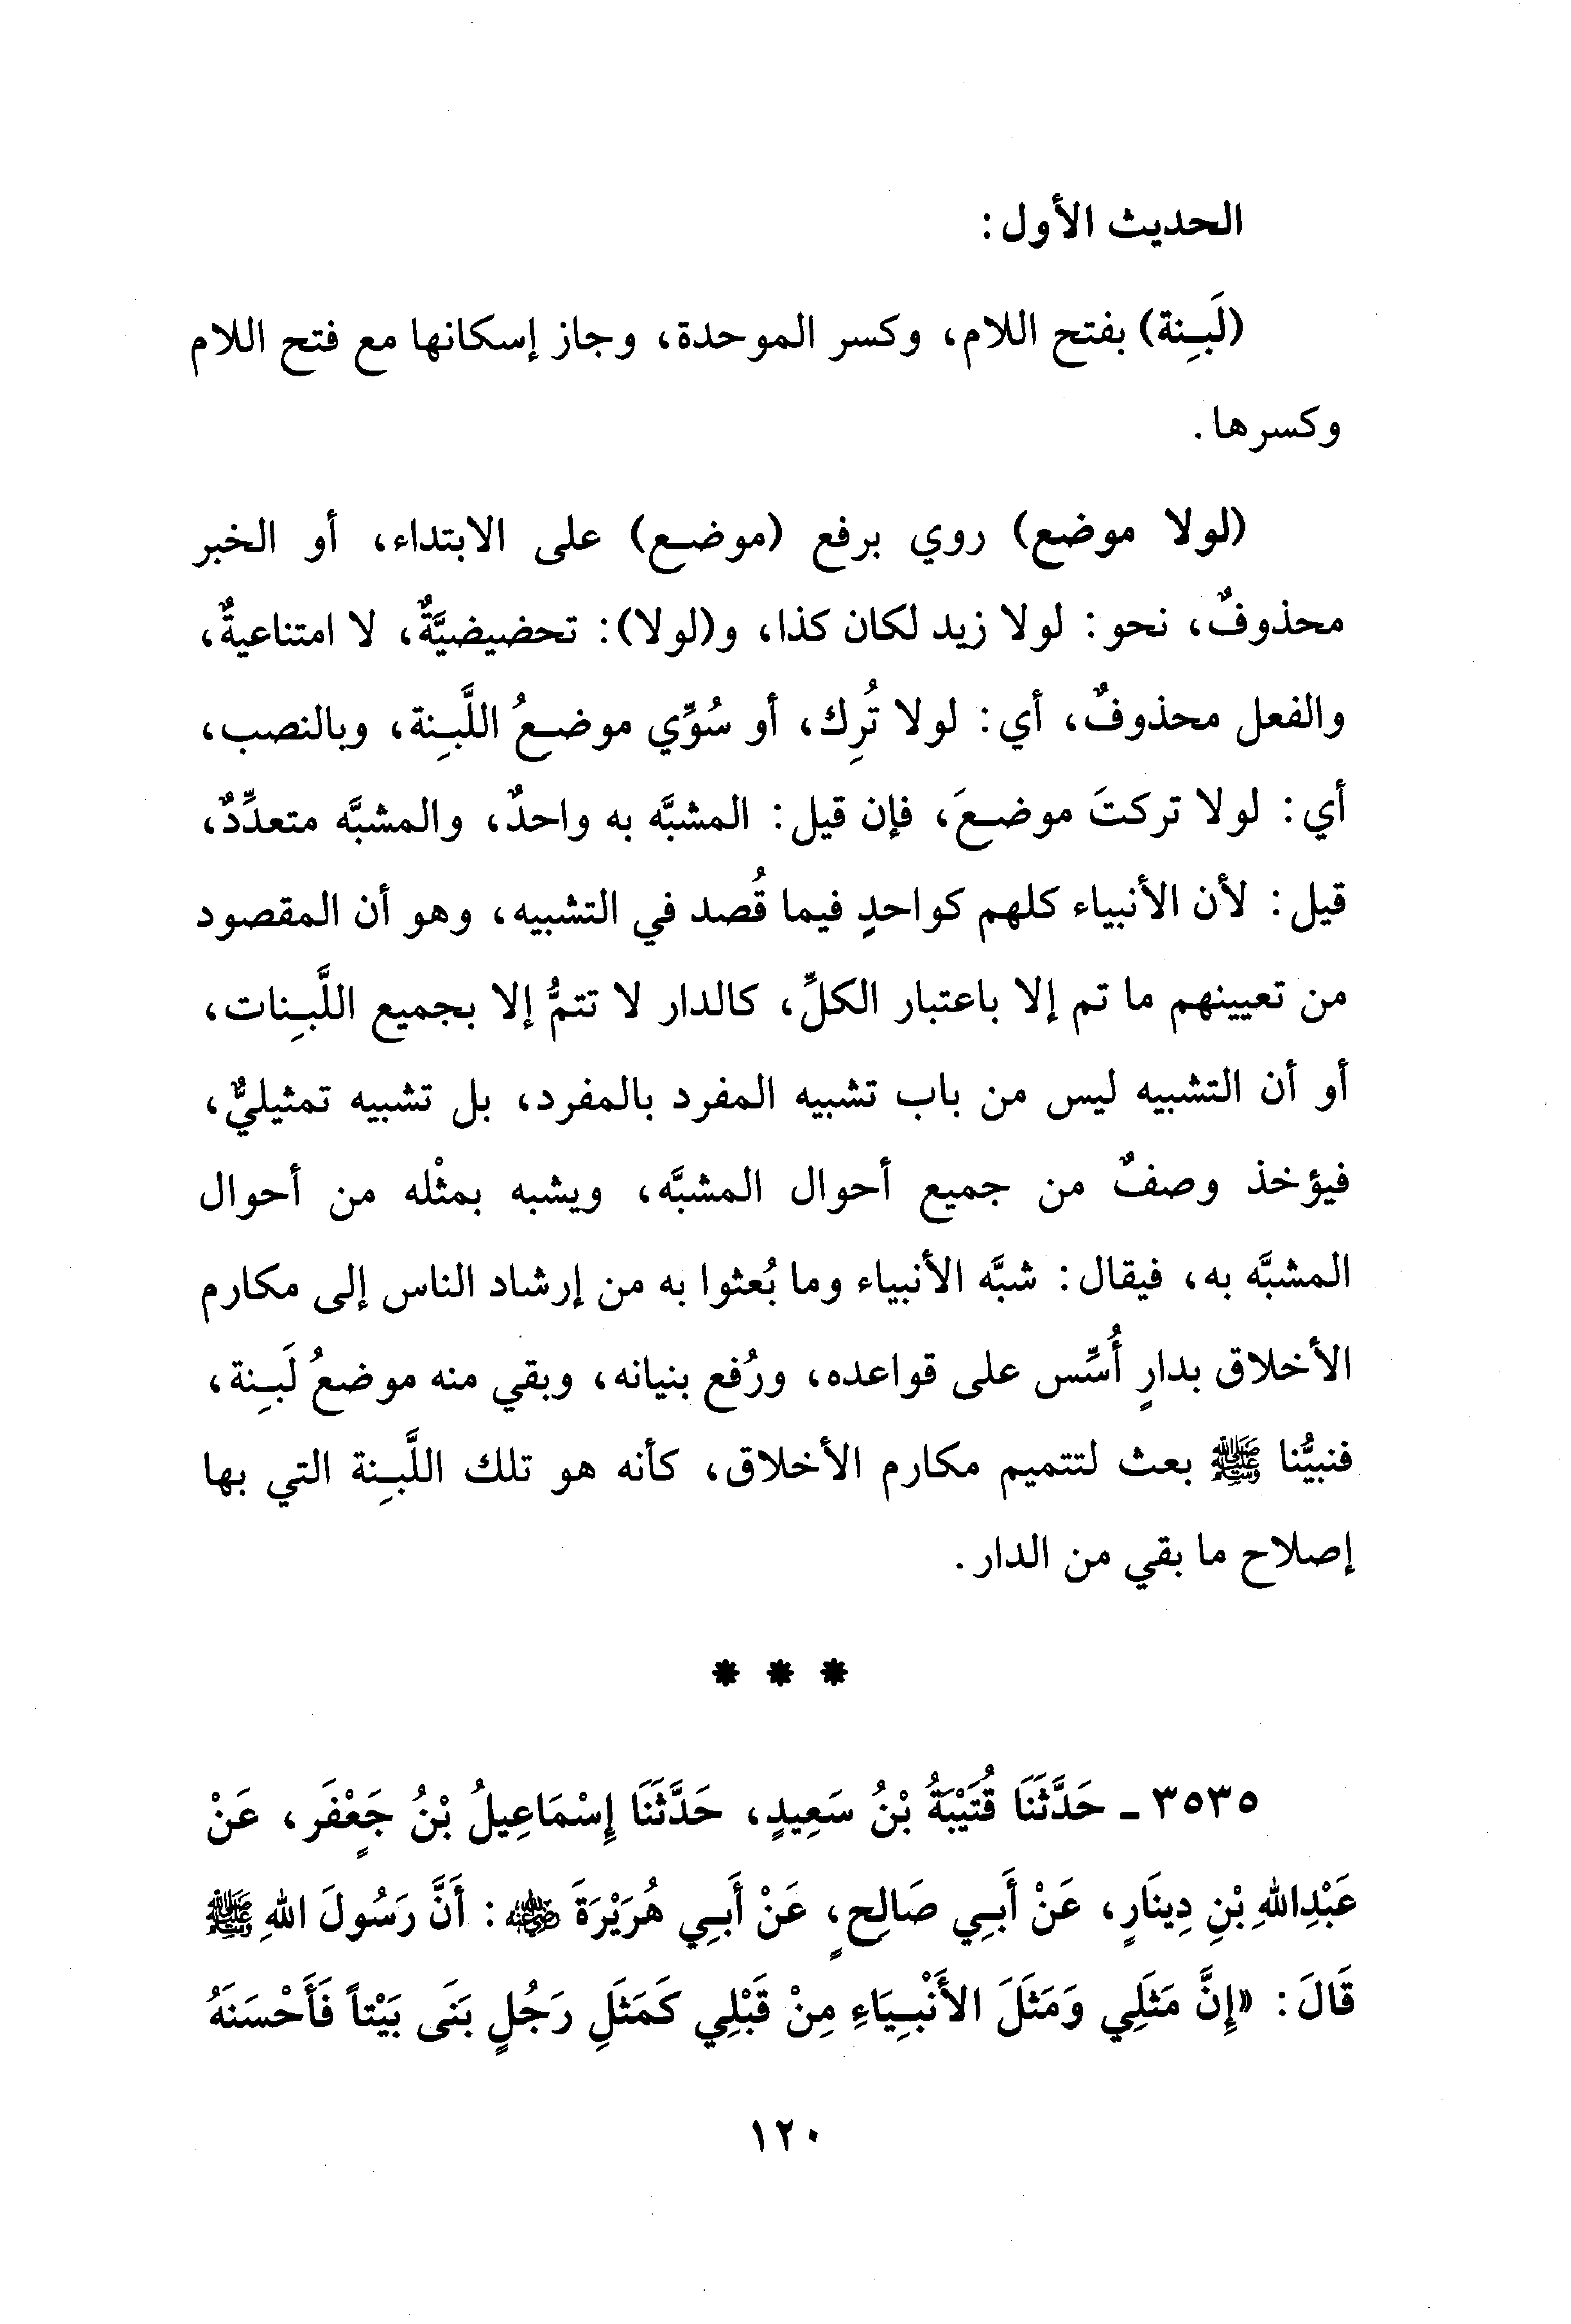 الحديث الأول:
(لَبِنة) بفتح اللام، وكسر الموحدة، وجاز إسكانها مع فتح اللام
وكسرها.
(لولا موضع) روي برفع (موضع) على الابتداء، أو الخبر
محذوفٌ، نحو: لولا زيد لكان كذا، و(لولا): تحضيضيَّةٌ، لا امتناعيةٌ،
والفعل محذوفٌ، أي: لولا تُرِك، أو سُوِّي موضعُ اللَّبِنة، وبالنصب،
أي: لولا تركتَ موضعَ، فإن قيل: المشبَّه به واحدٌ، والمشبَّه متعدِّدٌ،
قيل: لأن الأنبياء كلهم كواحدٍ فيما قُصد في التشبيه، وهو أن المقصود
من تعيينهم ما تم إلا باعتبار الكلِّ، كالدار لا تتمُّ إلا بجميع اللَّبِنات،
أو أن التشبيه ليس من باب تشبيه المفرد بالمفرد، بل تشبيه تمثيليٌّ،
فيؤخذ وصفٌ من جميع أحوال المشبَّه، ويشبه بمثْله من أحوال
المشبَّه به، فيقال: شبَّه الأنبياء وما بُعثوا به من إرشاد الناس إلى مكارم
الأخلاق بدارٍ أُسِّس على قواعده، ورُفع بنيانه، وبقي منه موضعُ لَبِنة،
فنبيُّنا ﷺ بعث لتتميم مكارم الأخلاق، كأنه هو تلك اللَّبِنة التي بها
إصلاح ما بقي من الدار.
* * *
٣٥٣٥ - حَدَّثَنَا قُتَيْبَةُ بْنُ سَعِيدٍ، حَدَّثَنَا إِسْمَاعِيلُ بْنُ جَعْفَرٍ، عَنْ
عَبْدِاللهِ بْنِ دِينَارٍ، عَنْ أَبِي صَالِحٍ، عَنْ أَبِي هُرَيْرَةَ رضي الله عنه: أَنَّ رَسُولَ اللهِ ﷺ
قَالَ: «إِنَّ مَثَلِي وَمَثَلَ الأَنْبِيَاءِ مِنْ قَبْلِي كَمَثَلِ رَجُلٍ بَنَى بَيْتاً فَأَحْسَنَهُ
١٢٠